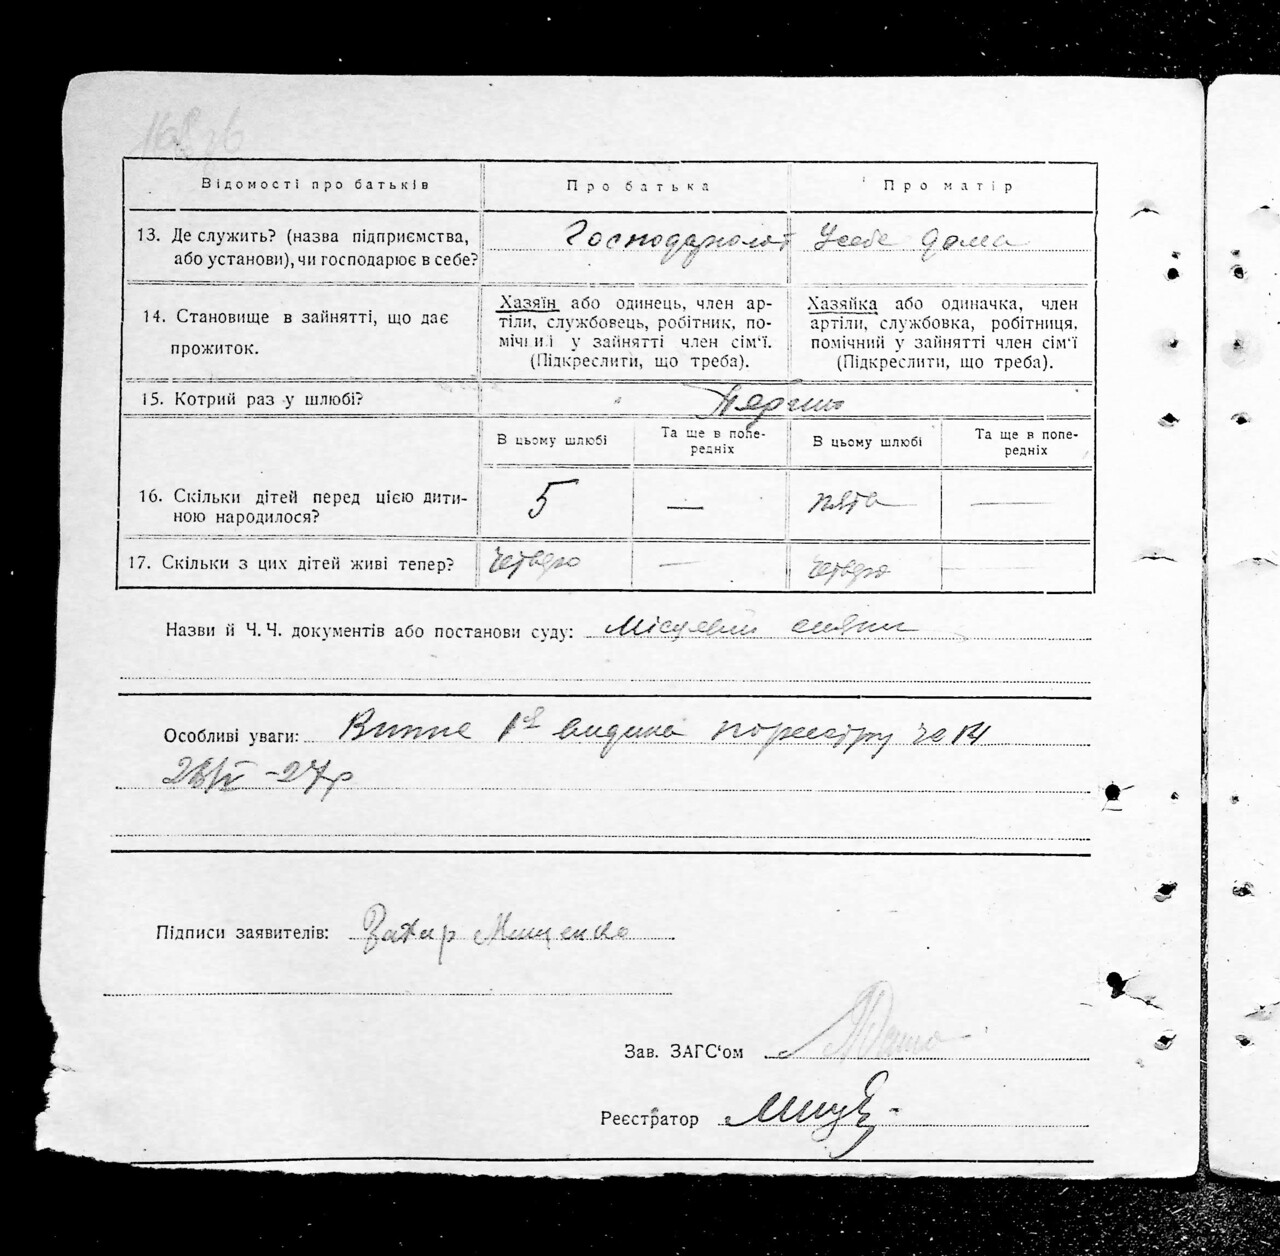 Відомості про батьків
Про батька
Про матір
13. Де служить? (назва підприємства,
або установи), чи господарює в себе?
Господарюют Усебе дома
14. Становище в зайнятті, що дає
прожиток.
Хазяїн або одинець, член ар-
тіли, службовець, робітник, по-
мічниі у зайнятті член сім'ї.
(Підкреслити, що треба).
Хазяйка або одиначка, член
артіли, службовка, робітниця,
помічний у зайнятті член сім'ї
(Підкреслити, що треба).
15. Котрий раз у шлюбі?
В цьому шлюбі
Та ще в попе-
редніх
В цьому шлюбі
Та ще в попе-
редніх
16. Скільки дітей перед цією дити-
ною народилося?
5 — пята —
17. Скільки з цих дітей живі тепер?
четверо — четверо —
Назви й Ч. Ч. документів або постанови суду: Місцевий
Особливі уваги: видана по реєстру
Підписи заявителів: Захар Мищенко
Зав. ЗАГС'ом
Реєстратор